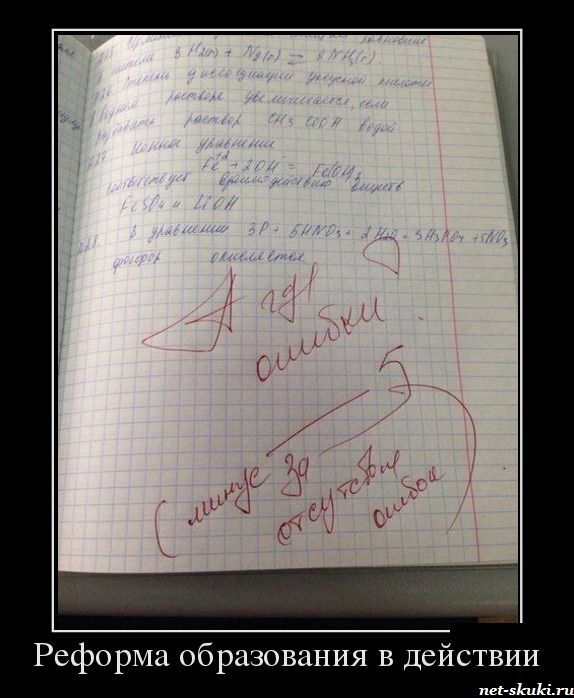 в системе 3H₂(г) + N₂(г) ⇄ 2NH₃(г).
026. Степень диссоциации уксусной кислоты
в водном растворе увеличивается, если
разбавить раствор CH₃COOH водой
027. Ионное уравнение
Fe⁺² + 2OH⁻ = Fe(OH)₂
соответствует взаимодействию веществ
FeSO₄ и LiOH
028. В уравнении 3P + 5HNO₃ + 2H₂O = 3H₃PO₄ + 5NO
фосфор окисляется
А где
ошибки
?
5
(минус за
отсутствие
ошибок)
Реформа образования в действии
net-skuki.ru